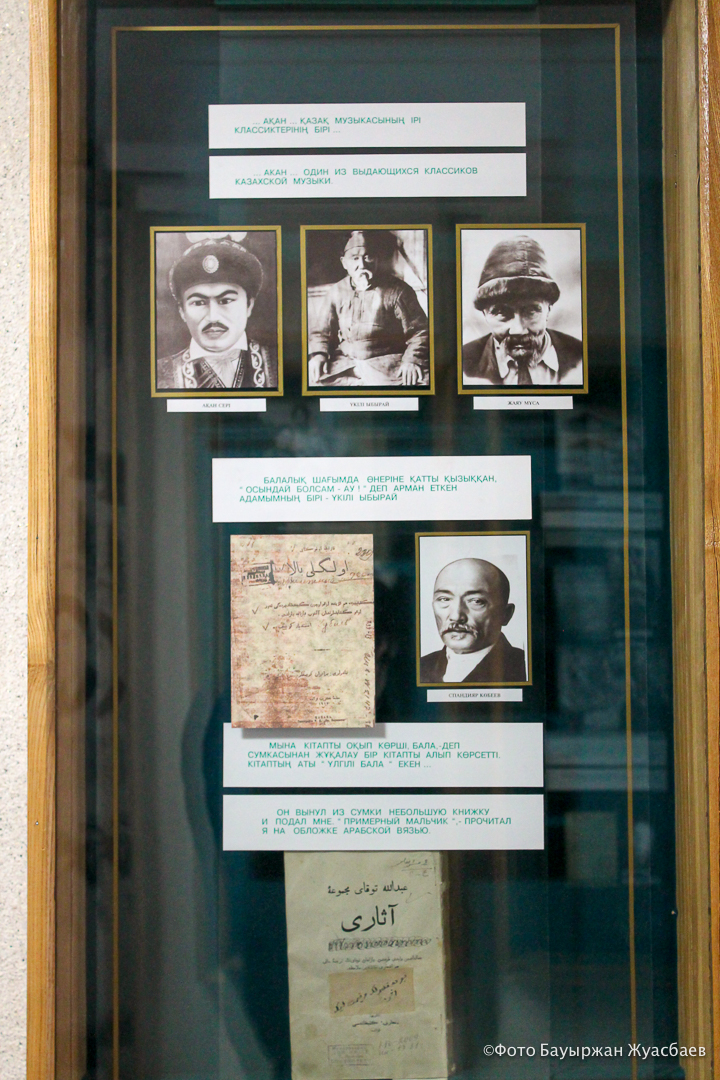 ... АҚАН ... ҚАЗАҚ МУЗЫКАСЫНЫҢ ІРІ
КЛАССИКТЕРІНІҢ БІРІ ...
... АКАН ... ОДИН ИЗ ВЫДАЮЩИХСЯ КЛАССИКОВ
КАЗАХСКОЙ МУЗЫКИ.
АҚАН СЕРІ
ҮКІЛІ ЫБЫРАЙ
ЖАЯУ МҰСА
БАЛАЛЫҚ ШАҒЫМДА ӨНЕРІНЕ ҚАТТЫ ҚЫЗЫҚҚАН,
" ОСЫНДАЙ БОЛСАМ - АУ ! " ДЕП АРМАН ЕТКЕН
АДАМЫМНЫҢ БІРІ - ҮКІЛІ ЫБЫРАЙ
اولگىلى بالا
СПАНДИЯР КӨБЕЕВ
МЫНА КІТАПТЫ ОҚЫП КӨРШІ, БАЛА,-ДЕП
СУМКАСЫНАН ЖҰҚАЛАУ БІР КІТАПТЫ АЛЫП КӨРСЕТТІ.
КІТАПТЫҢ АТЫ " ҮЛГІЛІ БАЛА " ЕКЕН ...
ОН ВЫНУЛ ИЗ СУМКИ НЕБОЛЬШУЮ КНИЖКУ
И ПОДАЛ МНЕ. " ПРИМЕРНЫЙ МАЛЬЧИК ",- ПРОЧИТАЛ
Я НА ОБЛОЖКЕ АРАБСКОЙ ВЯЗЬЮ.
عبدالله توقاى مجموعهٔ
آثارى
©Фото Бауыржан Жуасбаев